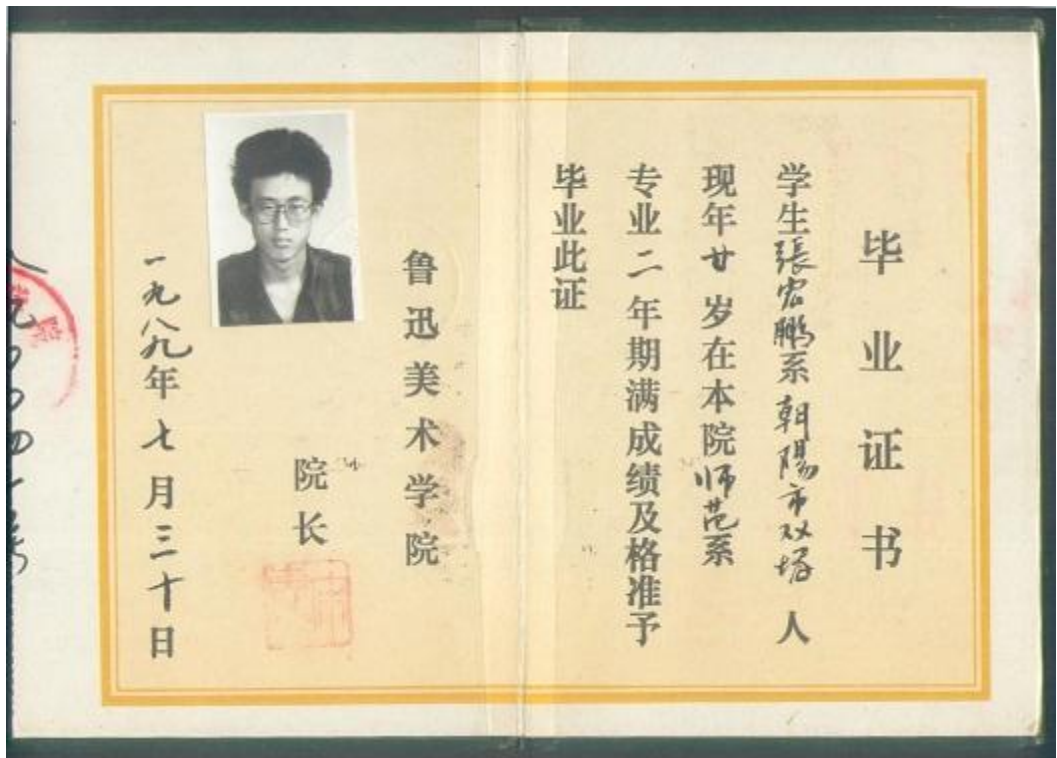 毕业证书
学生張宏鹏系朝陽市双塔人
现年廿岁在本院师范系
专业二年期满成绩及格准予
毕业此证
鲁迅美术学院
院长
一九八九年七月三十日